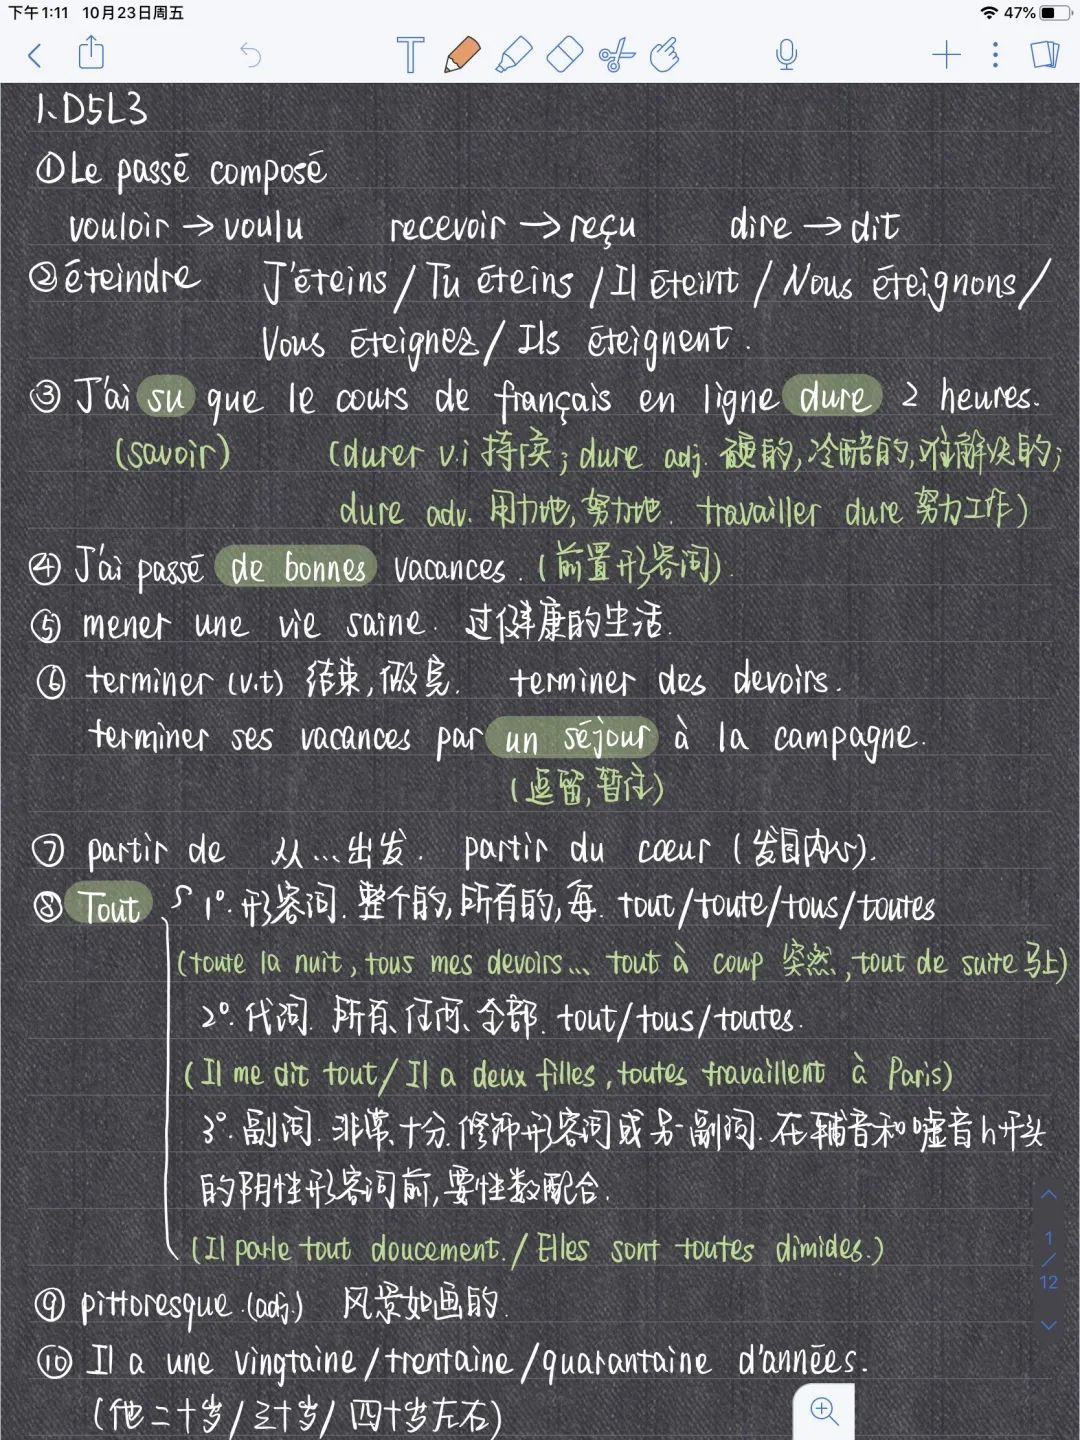 下午1:11 10月23日周五 47%
1、D5L3
①Le passé composé
vouloir → voulu recevoir → reçu dire → dit
②éteindre J'éteins / Tu éteins / Il éteint / Nous éteignons /
Vous éteignez / Ils éteignent.
③ J'ai su que le cours de français en ligne dure 2 heures.
(savoir) (durer v.i 持续; dure adj. 硬的,冷酷的,难解决的;
dure adv. 用力地,努力地. travailler dure 努力工作)
④ J'ai passé de bonnes vacances. (前置形容词).
⑤ mener une vie saine. 过健康的生活.
⑥ terminer (v.t) 结束,做完. terminer des devoirs.
terminer ses vacances par un séjour à la campagne.
(逗留,暂住)
⑦ partir de 从…出发. partir du cœur (发自内心).
⑧ Tout 1°. 形容词. 整个的,所有的,每. tout/toute/tous/toutes
(toute la nuit, tous mes devoirs... tout à coup 突然, tout de suite 马上)
2°. 代词. 所有、任何、全部. tout/tous/toutes.
(Il me dit tout/ Il a deux filles, toutes travaillent à Paris)
3°. 副词. 非常、十分. 修饰形容词或另一副词. 在辅音和嘘音h开头
的阴性形容词前,要性数配合.
(Il parle tout doucement./ Elles sont toutes dimides.)
⑨ pittoresque.(adj.) 风景如画的.
⑩ Il a une vingtaine/trentaine/quarantaine d'années.
(他二十岁/三十岁/四十岁左右)
1
/
12